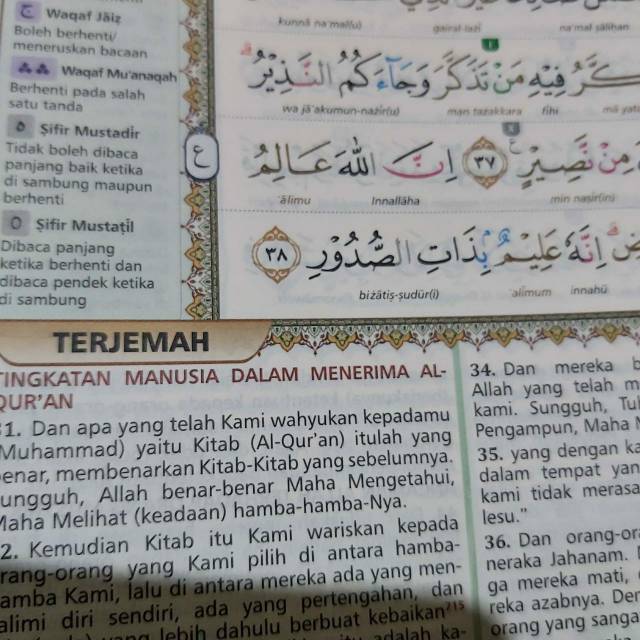 Waqaf Jāiz
Boleh berhenti/
meneruskan bacaan
Waqaf Mu'anaqah
Berhenti pada salah
satu tanda
Ṣifir Mustadīr
Tidak boleh dibaca
panjang baik ketika
di sambung maupun
berhenti
Ṣifir Mustaṭīl
Dibaca panjang
ketika berhenti dan
dibaca pendek ketika
di sambung
kunnā na'mal(u) gairal-lażī na'mal ṣāliḥan
فِيْهِ مَنْ تَذَكَّرَ وَجَاۤءَكُمُ النَّذِيْرُ
wa jā'akumun-nażīr(u) man tazakkara fīhi
مِنْ نَّصِيْرٍ ٣٧ اِنَّ اللّٰهَ عَالِمُ
ع
'ālimu Innallāha min naṣīr(in)
اِنَّهٗ عَلِيْمٌۢ بِذَاتِ الصُّدُوْرِ ٣٨
biżātiṣ-ṣudūr(i) 'alīmum innahū
TERJEMAH
TINGKATAN MANUSIA DALAM MENERIMA AL-
QUR'AN
31. Dan apa yang telah Kami wahyukan kepadamu
(Muhammad) yaitu Kitab (Al-Qur'an) itulah yang
benar, membenarkan Kitab-Kitab yang sebelumnya.
Sungguh, Allah benar-benar Maha Mengetahui,
Maha Melihat (keadaan) hamba-hamba-Nya.
32. Kemudian Kitab itu Kami wariskan kepada
orang-orang yang Kami pilih di antara hamba-
hamba Kami, lalu di antara mereka ada yang men-
zalimi diri sendiri, ada yang pertengahan, dan
lebih dahulu berbuat kebaikan⁷¹⁵
adalah ka-
34. Dan mereka
Allah yang telah
kami. Sungguh,
Pengampun, Maha
35. yang dengan
dalam tempat yang
kami tidak merasa
lesu."
36. Dan
neraka Jahanam.
mereka mati,
azabnya.
orang yang